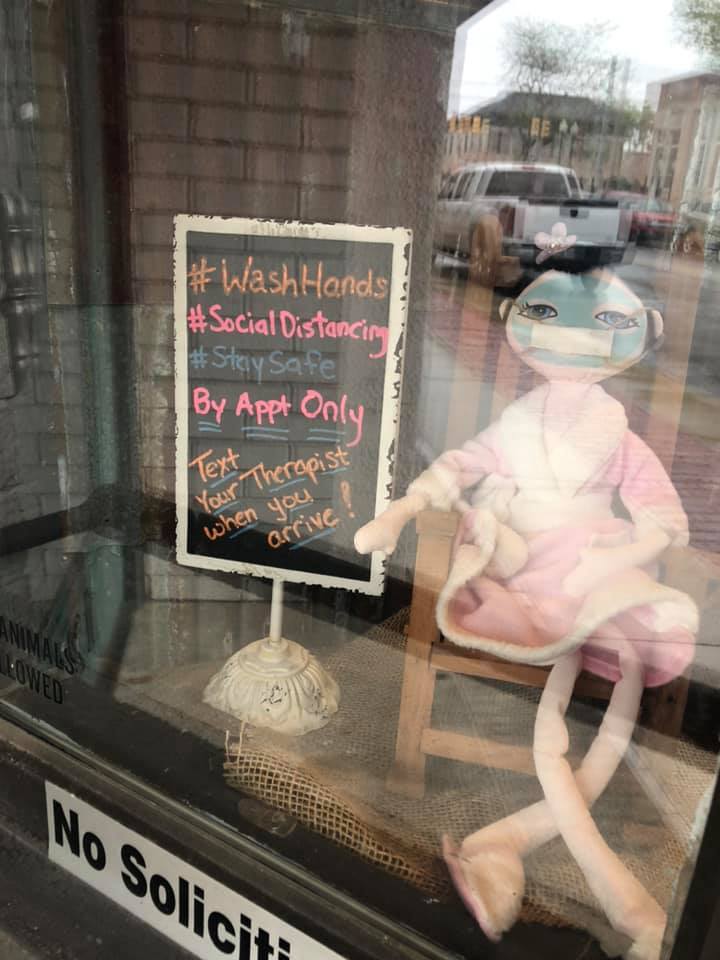 #WashHands
#SocialDistancing
#StaySafe
By Appt Only
Text
Your Therapist
when you
arrive!
ANIMALS
LLOWED
No Soliciti